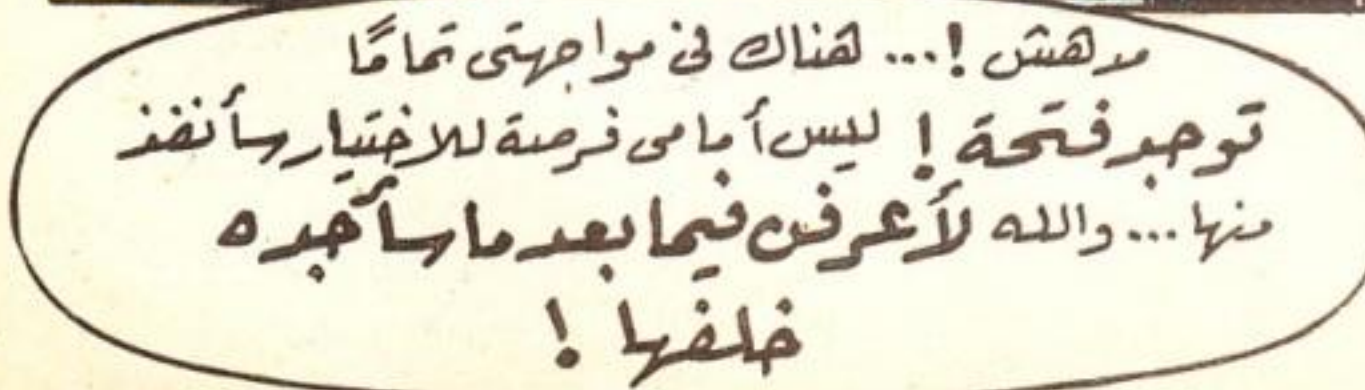 مدهش !... هناك فى مواجهتى تمامًا
توجد فتحة ! ليس أمامى فرصة للاختيار سأنفذ
منها... والله لأعرفن فيما بعد ما سأجده
خلفها !